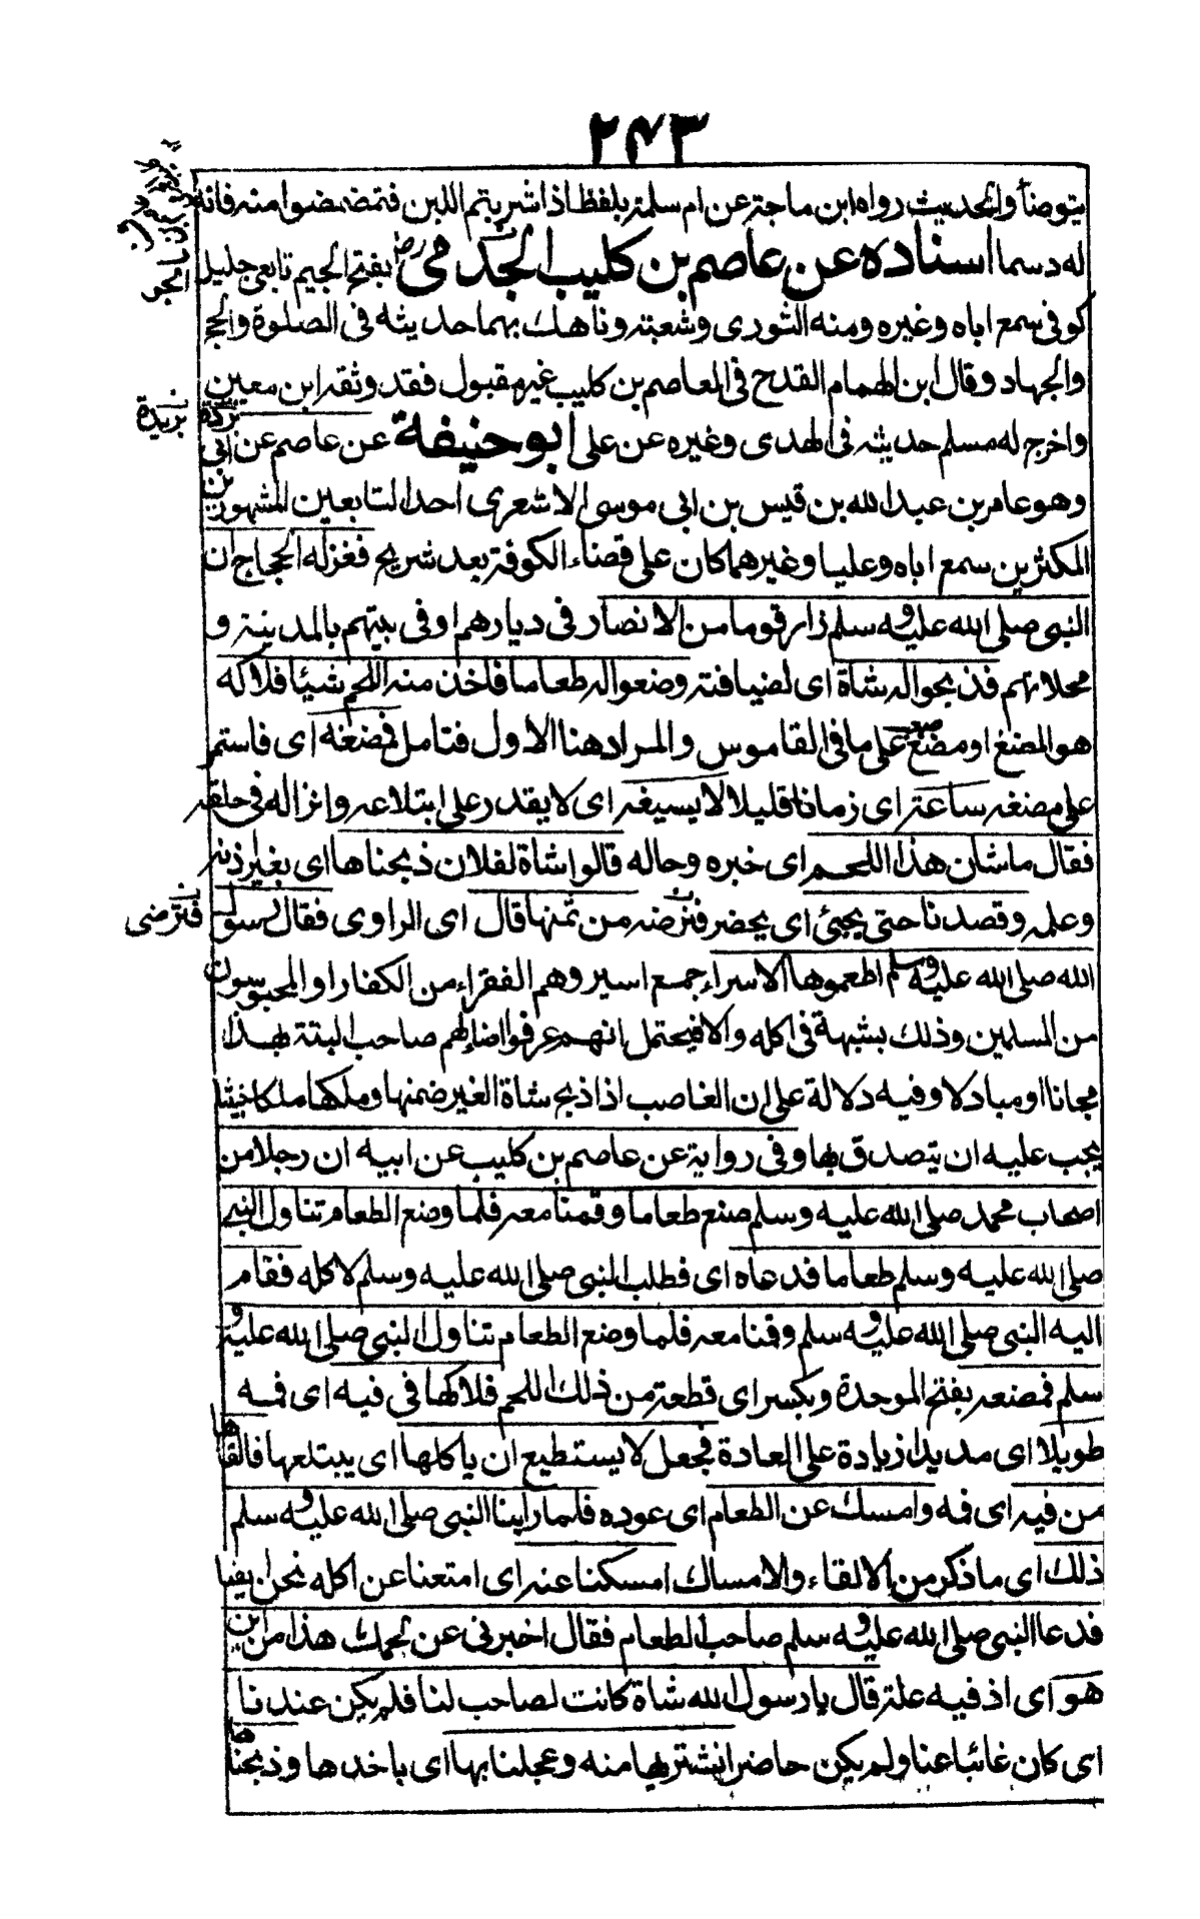 ٢٤٣
يتوضأ والحديث رواه ابن ماجة عن ام سلمة بلفظ اذا شربتم اللبن فتمضمضوا منه فانه
له دسما اسناده عن عاصم بن كليب الجرمى بفتح الجيم تابعى جليل
كوفى سمع اباه وغيره ومنه الثورى وشعبة وناهيك بهما حديثه فى الصلوة والحج
والجهاد وقال ابن الهمام القدح فى العاصم بن كليب غير مقبول فقد وثقه ابن معين
واخرج له مسلم حديثه فى الهدى وغيره عن على ابو حنيفة عن عاصم عن ابى بردة
بريدة
وهو عامر بن عبد الله بن قيس بن ابى موسى الاشعرى احد التابعين المشهورين
المكثرين سمع اباه وعليا وغيرهما كان على قضاء الكوفة بعد شريح فعزله الحجاج ان
النبى صلى الله عليه وسلم زار قوما من الانصار فى ديارهم اوفى بيتهم بالمدينة و
محلاتهم فذبحوا له شاة اى لضيافته وضعوا له طعاما فاخذ منه اللحم شيئا فلاكه
هو المضغ او مضغ على ما فى القاموس والمراد هنا الاول فتامل فمضغه اى فاستمر
على مضغه ساعة اى زمانا قليلا لا يسيغه اى لا يقدر على ابتلاعه وانزاله فى حلقه
فقال ما شان هذا اللحم اى خبره وحاله قالوا شاة لفلان ذبحناها اى بغير اذنه
وعلمه وقصدنا حتى يجئ اى يحضر فنرضه من ثمنها قال اى الراوى فقال رسول
فنرضى
الله صلى الله عليه وسلم اطعموها الاسراء جمع اسير وهم الفقراء من الكفار او المحبوسون
من المسلمين وذلك بشبهة فى اكله والا فيحتمل انهم عرفوا رضاء لهم صاحب البتة بهذا
مجانا او مبادلا وفيه دلالة على ان الغاصب اذا ذبح شاة الغير ضمنها وملكها ملكا خبيثا
يجب عليه ان يتصدق بها وفى رواية عن عاصم بن كليب عن ابيه ان رجلا من
اصحاب محمد صلى الله عليه وسلم صنع طعاما وقمنا معه فلما وضع الطعام تناول النبى
صلى الله عليه وسلم طعاما فدعاه اى فطلب النبى صلى الله عليه وسلم لاكله فقام
اليه النبى صلى الله عليه وسلم وقمنا معه فلما وضع الطعام تناول النبى صلى الله عليه و
سلم فمضعه بفتح الموحدة وبكسر اى قطعة من ذلك اللحم فلاكها فى فيه اى فمه
طويلا اى مديدا زيادة على العادة فجعل لا يستطيع ان ياكلها اى يبتلعها فالقاها
من فيه اى فمه وامسك عن الطعام اى عوده فلما راينا النبى صلى الله عليه وسلم
ذلك اى ما ذكر من الالقاء والامساك امسكنا عنه اى امتعنا عن اكله نحن ايضا
فدعا النبى صلى الله عليه وسلم صاحب الطعام فقال اخبرنى عن لحمك هذا من اين
هو اى اذ فيه علة قال يا رسول الله شاة كانت لصاحب لنا فلم يكن عندنا
اى كان غائبا عنا ولم يكن حاضرا نشتريها منه وعجلنا بها اى باخذها وذبحناها